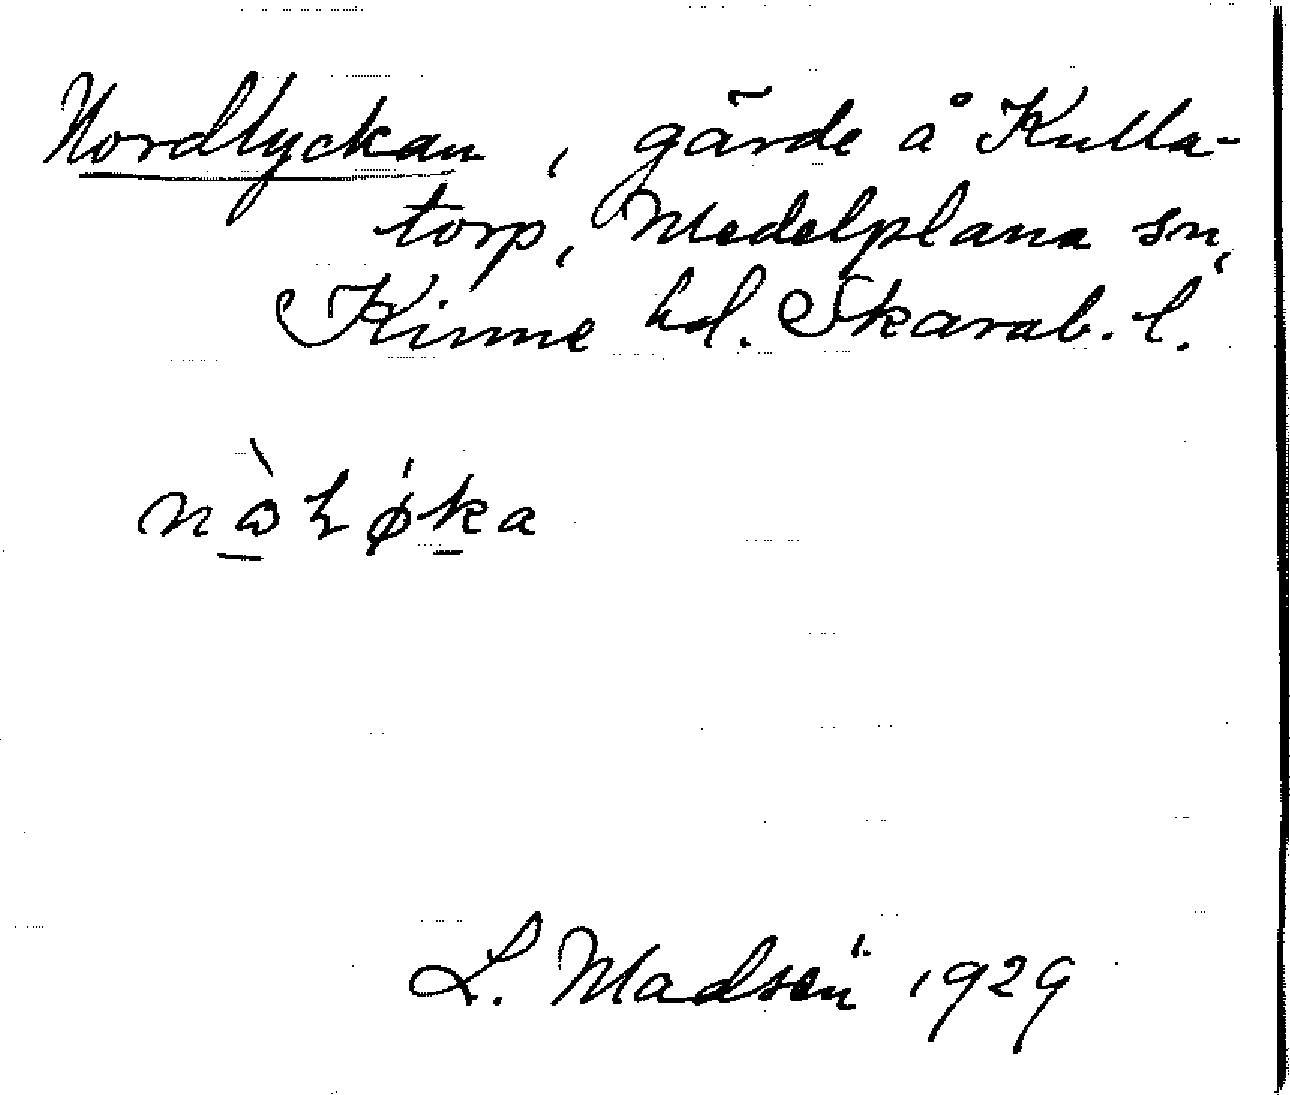 Nordlyckan, gärde å Kulla-
torp, Medelplana sn,
Kinne hd. Skarab. l.
L. Madsén 1929